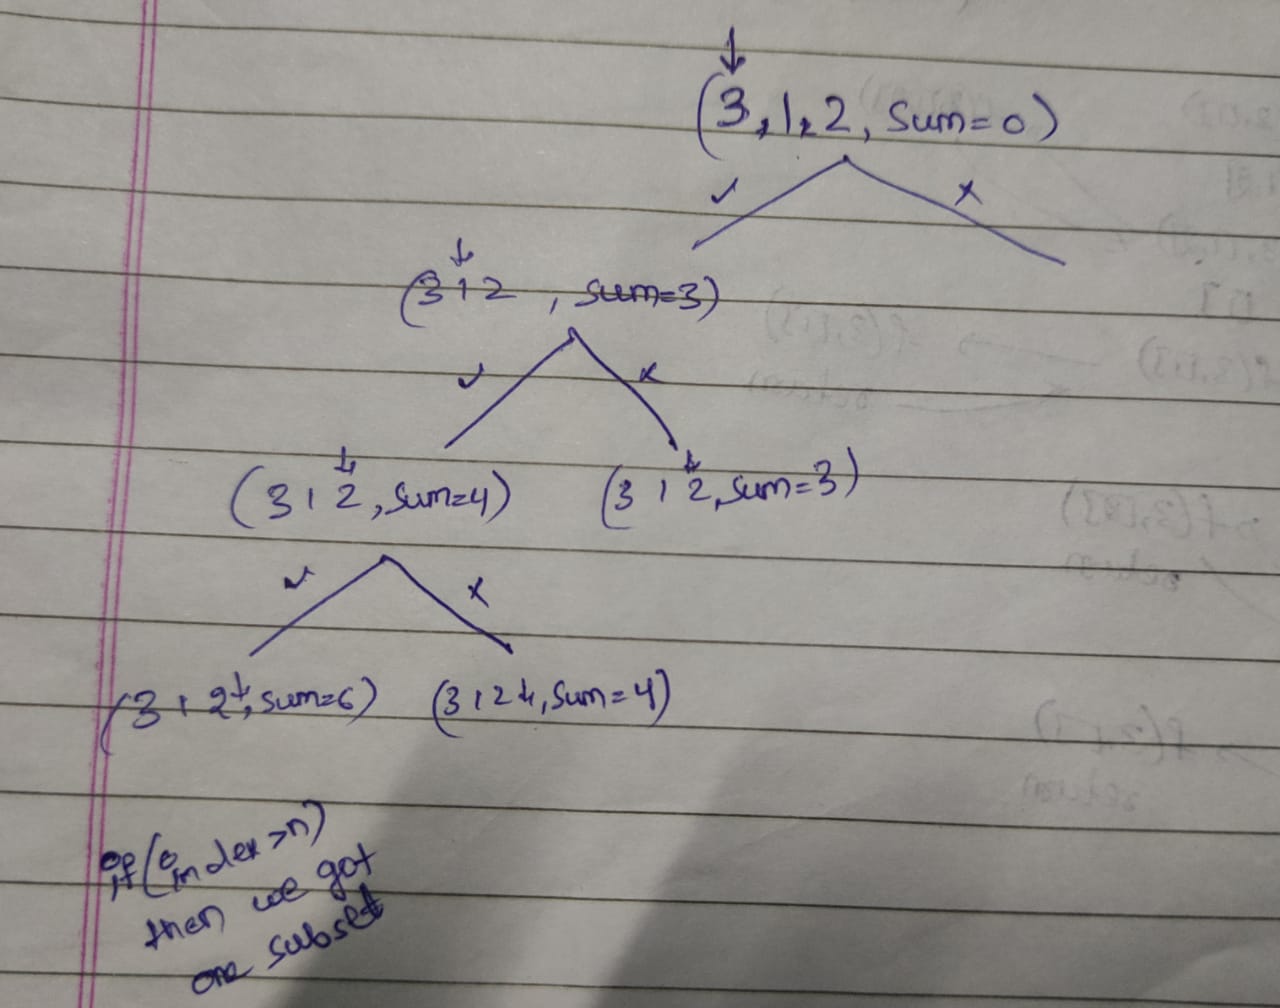 (3,1,2, sum=0)
✓ x
(3 1 2 , sum=3)
✓ x
(3 1 2, sum=4) (3 1 2, sum=3)
✓ x
(3 1 2 ↓, sum=6) (3 1 2 ↓, sum=4)
if (index >n)
then we got
one subset